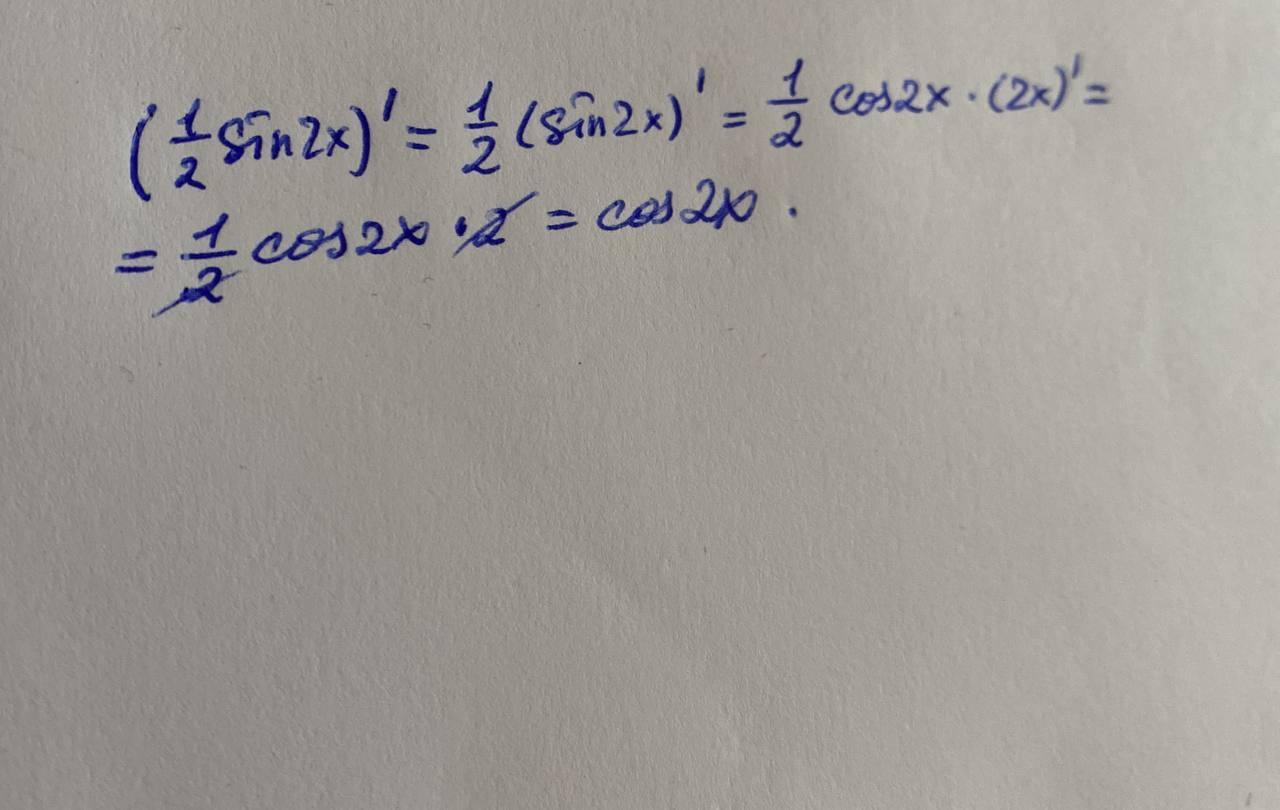 (1/2 sin2x)' = 1/2 (sin2x)' = 1/2 cos2x · (2x)' =
= 1/2 cos2x · 2 = cos2x.